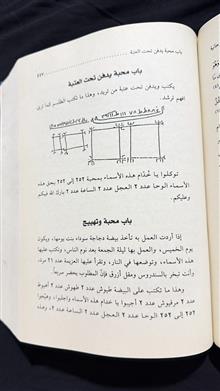 باب محبة يدفن تحت العتبة
باب محبة يدفن تحت العتبة
يكتب ويدفن تحت عتبة من تريد، وهذا ما تكتب الطلسم كما ترى
فهم ترشد.
توكلوا يا خدّام هذه الأسماء بمحبة ٢٥٢ إلى ٢٥٢ بحق هذه
الأسماء الوحا عدد ٢ العجل عدد ٢ الساعة عدد ٢ بارك الله فيكم
وعليكم.
باب محبة وتهييج
إذا أردت العمل به تأخذ بيضة دجاجة سوداء بنت يومها، ويكون
يوم الخميس، والعمل بها ليلة الجمعة بعد نوم الناس، وتكتب عليها
هذه الأسماء، وتوضعها في النار، وتقرأ عليها العزيمة عدد ٢١ مرة،
وأنت تبخر بالسندروس ومقل أزرق فإنّ المطلوب يحضر سريعاً.
وهذا ما تكتب على البيضة طيوش عدد ٢ طهوش عدد ٢ أعيوط
عدد ٢ مرقيوش عدد ٢ أجيبوا يا خدام هذه الأسماء واجلبوا، وهيجوا
٢٥٢ إلى ٢٥٢ الوحا عدد ٢ العجل عدد ٢ الساعة عدد ٢، وهذه